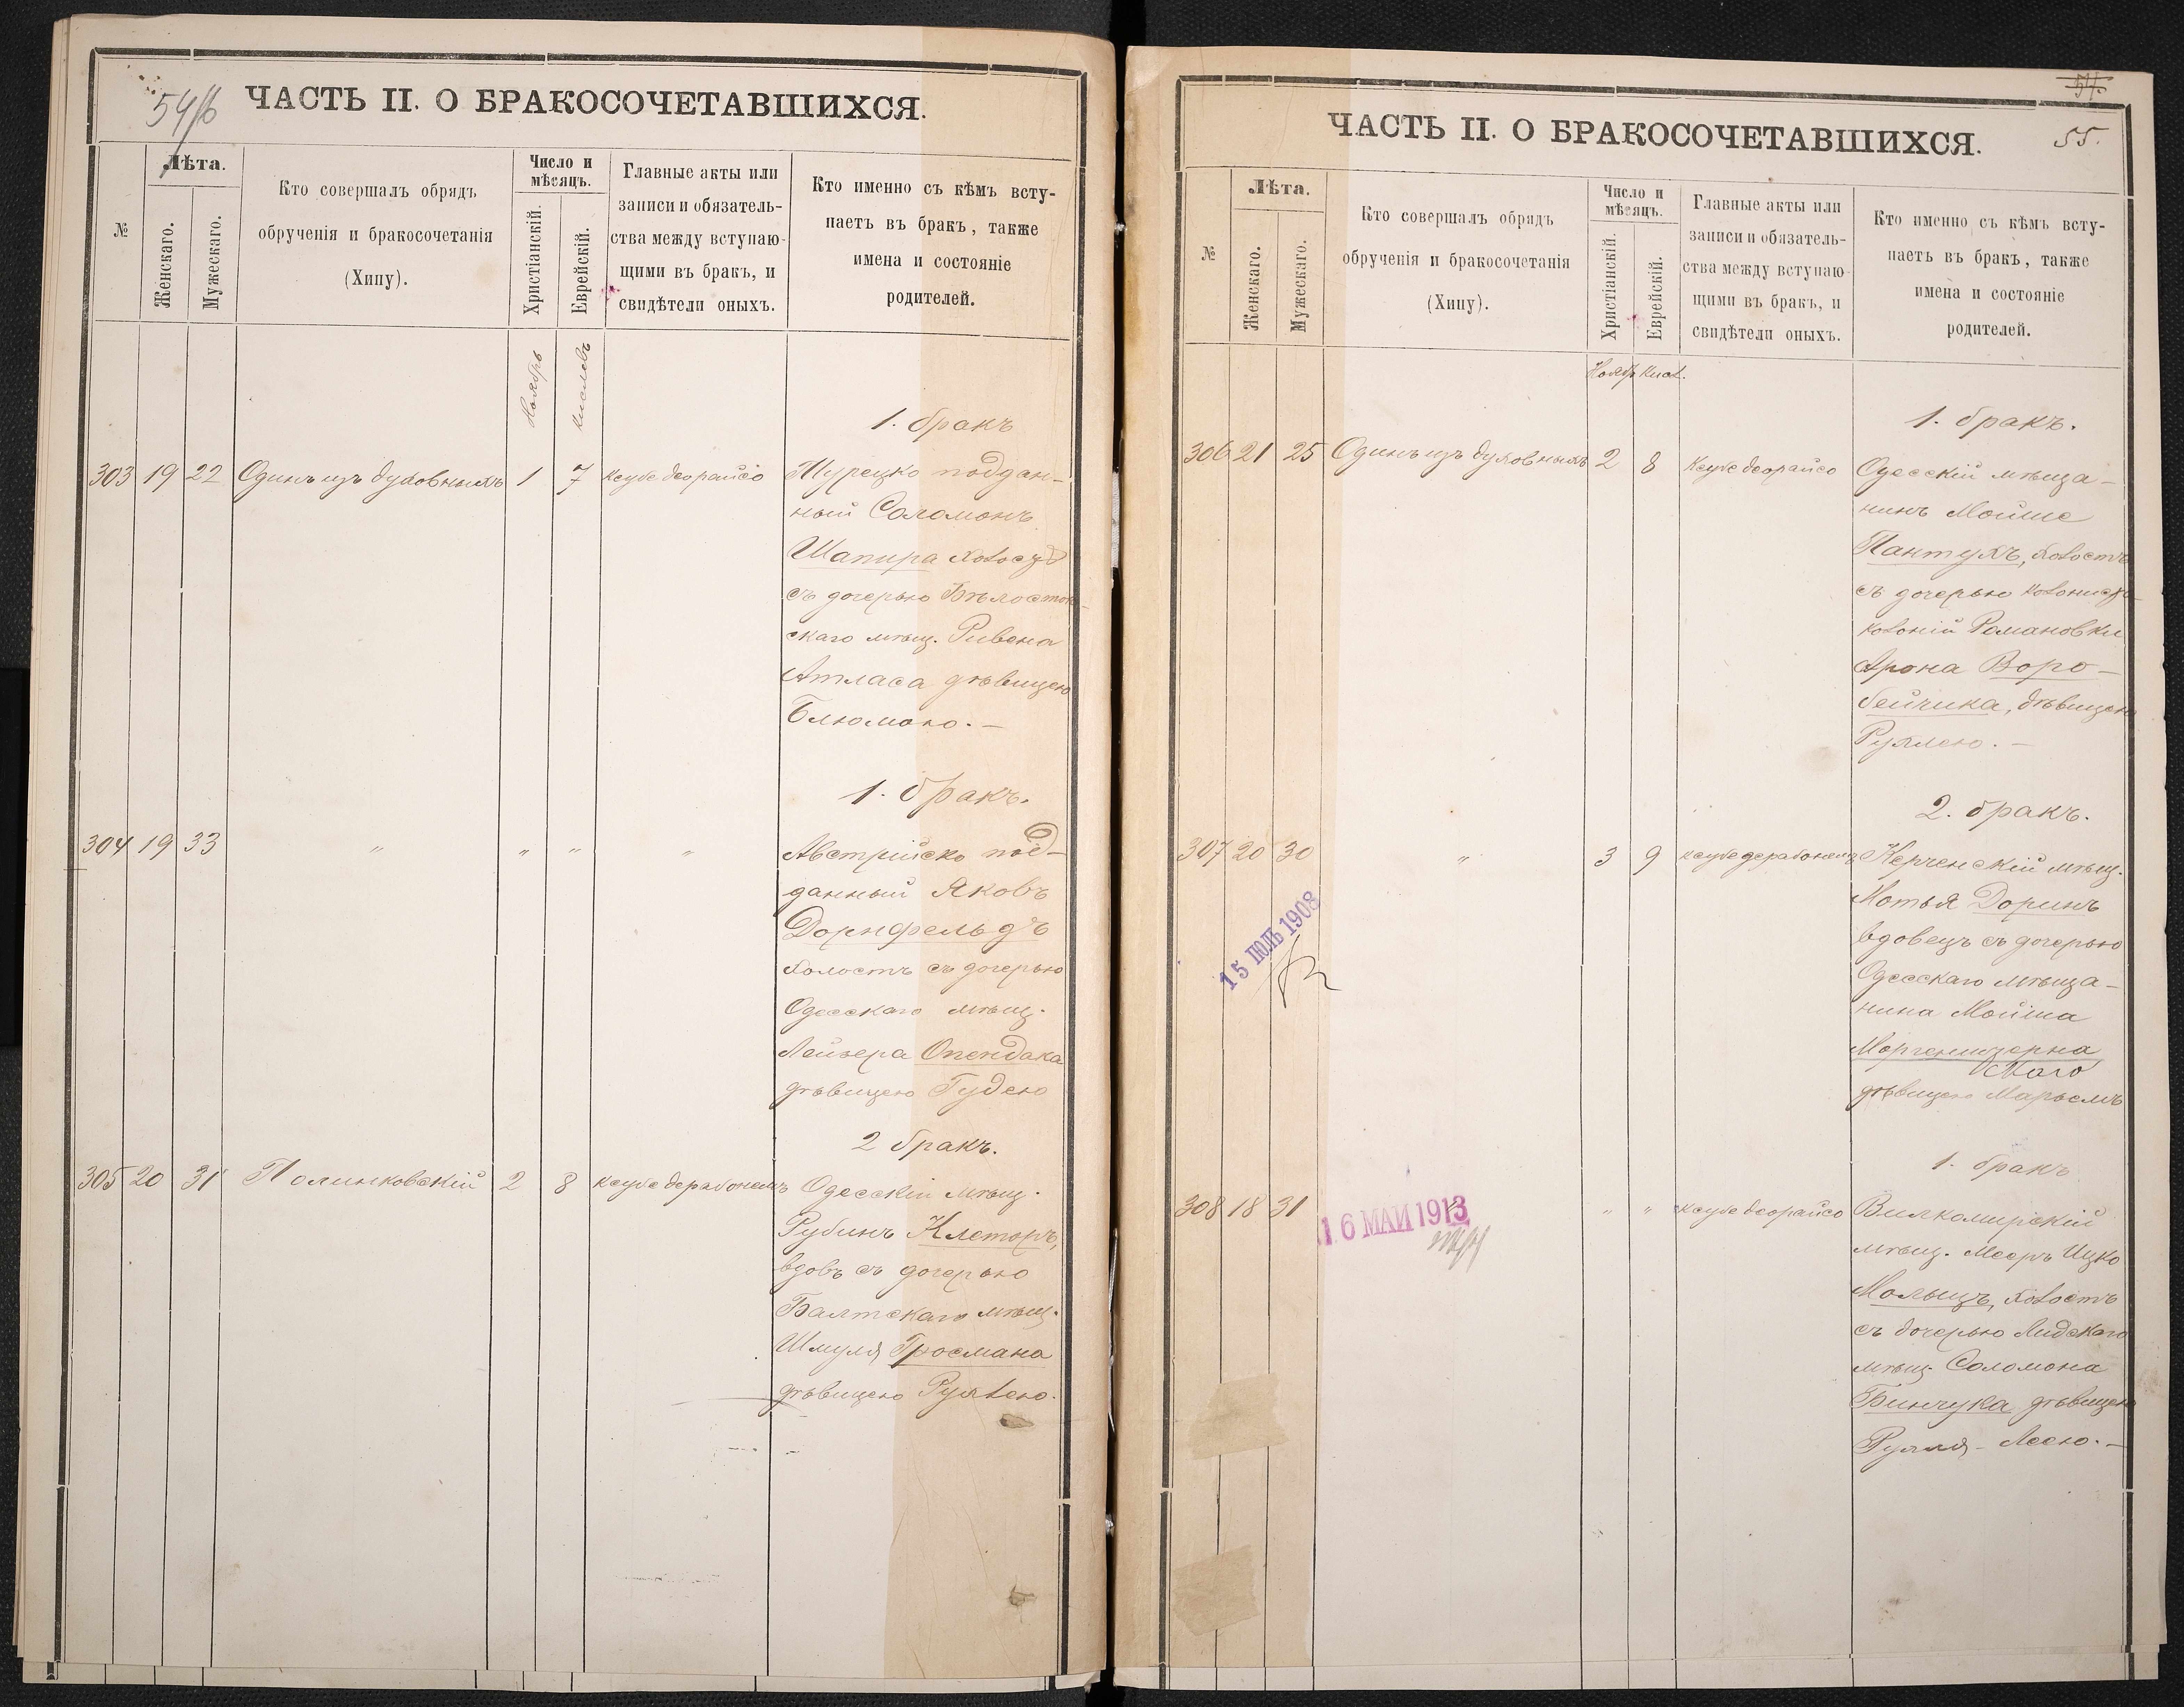 54/б
ЧАСТЬ II. О БРАКОСОЧЕТАВШИХСЯ.
№
Лѣта.
Женскаго.
Мужескаго.
Кто совершалъ обрядъ
обрученія и бракосочетанія
(Хипу).
Число и
мѣсяцъ.
Христіанскій.
Еврейскій.
Главные акты или
записи и обязатель-
ства между вступаю-
щими въ бракъ, и
свидѣтели оныхъ.
Кто именно съ кѣмъ всту-
паетъ въ бракъ, также
имена и состояніе
родителей.
Ноябрь
Кислевъ
1. бракъ
303 19 22 Одинъ изъ духовныхъ 1 7 ксубе деорайсо Турецко поддан-
ный Соломонъ
Шапира холостъ
съ дочерью Бѣлосток-
скаго мѣщ. Ривена
Атласа дѣвицею
Блюмою. —
1. бракъ.
304 19 33 " " " " Австрійско под-
данный Яковъ
Дорнфельдъ
холостъ съ дочерью
Одесскаго мѣщ.
Лейзера Опендака
дѣвицею Гудею
2 бракъ.
305 20 31 Полинковскій 2 8 ксубе дерабонемъ Одесскій мѣщ.
Рубинъ Клеторъ,
вдовъ съ дочерью
Балтскаго мѣщ.
Шмуля Гросмана
дѣвицею Рухлею.
54.
55.
ЧАСТЬ II. О БРАКОСОЧЕТАВШИХСЯ.
№
Лѣта.
Женскаго.
Мужескаго.
Кто совершалъ обрядъ
обрученія и бракосочетанія
(Хипу).
Число и
мѣсяцъ.
Христіанскій.
Еврейскій.
Главные акты или
записи и обязатель-
ства между вступаю-
щими въ бракъ, и
свидѣтели оныхъ.
Кто именно съ кѣмъ всту-
паетъ въ бракъ, также
имена и состояніе
родителей.
Ноябр Кисл.
1. бракъ.
306 21 25 Одинъ изъ духовныхъ 2 8 Ксубе деорайсо Одесскій мѣща-
нинъ Мойше
Пантухъ, холостъ
съ дочерью колонист
колоніи Романовки
Арона Воро-
бейчика, дѣвицею
Рухлею. —
2. бракъ.
307 20 30 " 3 9 ксубе дерабонемъ Керченскій мѣщ.
Мотья Доринъ
вдовецъ съ дочерью
Одесскаго мѣща-
нина Мойша
Моргенштерна
дѣвицею Марьемъ
15 ІЮЛЬ 1908
1. бракъ
308 18 31 " " ксубе деорайсо Вилкомирскій
мѣщ. Мееръ Ицко
Мольцъ, холостъ
съ дочерью Лидскаго
мѣщ. Соломона
Бинчука дѣвицею
Рухля-Леею. —
16 МАЙ 1913